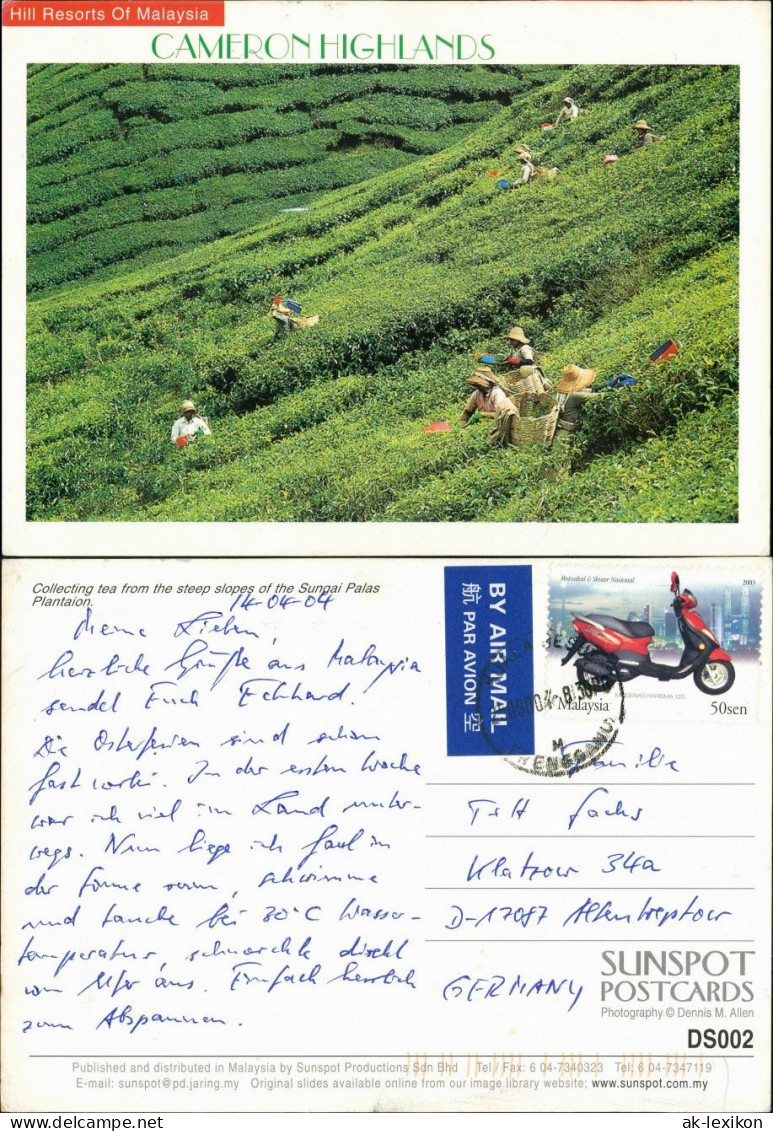 Hill Resorts Of Malaysia
CAMERON HIGHLANDS
Collecting tea from the steep slopes of the Sungai Palas
Plantaion.
14-04-04
Meine Lieben,
herzliche Grüße aus Malaysia
sendet Euch Eckhard.
Die Osterferien sind schon
fast vorbei. In der ersten Woche
war ich viel im Land unter-
wegs. Nun liege ich faul in
der Sonne rum, schwimme
und tauche bei 30°C Wasser-
temperatur, schnorchle direkt
vom Ufer aus. Einfach herrlich
zum Abspannen.
BY AIR MAIL
航 PAR AVION 空
Motosikal & Skuter Nasional
2003
MODENAS KARISMA 125
Malaysia
50sen
TRENGGANU
Familie
T+H Sachs
Klatzow 34a
D-17087 Altentreptow
GERMANY
SUNSPOT
POSTCARDS
Photography © Dennis M. Allen
DS002
Published and distributed in Malaysia by Sunspot Productions Sdn Bhd Tel / Fax: 6 04-7340323 Tel: 6 04-7347119
E-mail: sunspot@pd.jaring.my Original slides available online from our image library website; www.sunspot.com.my
© oldthing.de
ak-lexikon